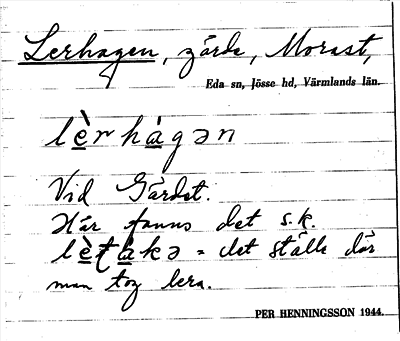 Lerhagen, gärde, Morast,
Eda sn, Jösse hd, Värmlands län.
lèrhàgən
Vid Gärdet.
Här fanns det s.k.
lèṭàkə = det ställe där
man tog lera.
PER HENNINGSSON 1944.